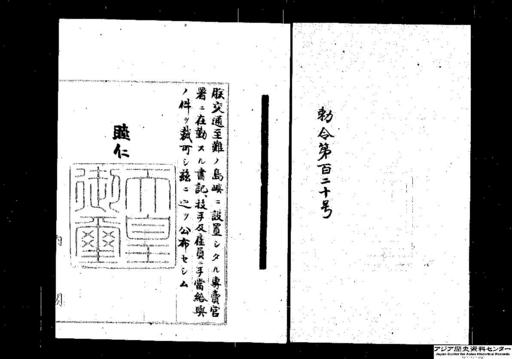 勅令第百二十号
朕交通至難ノ島嶼ニ設置シタル専賣官
署ニ在勤スル書記、技手及雇員ニ手當給與
ノ件ヲ裁可シ茲ニ之ヲ公布セシム
睦仁
天皇
御璽
アジア歴史資料センター
Japan Center for Asian Historical Records